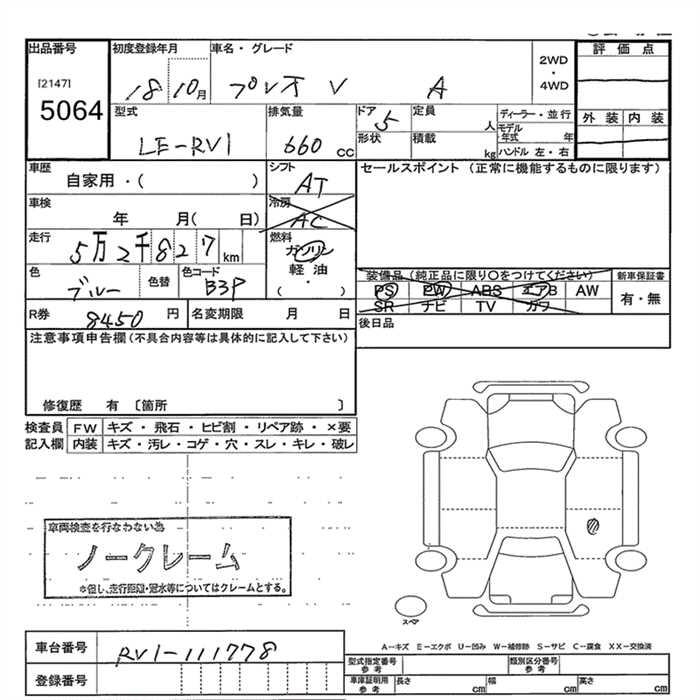 出品番号 初度登録年月 車名・グレード 評価点
[2147]
5064
18 10月 プレオ V A
2WD
・
4WD
型式 排気量 ドア 定員 ディーラー・並行 外装 内装
LE-RV1 660 cc 5 人 モデル・年式 年
形状 積載 kg ハンドル 左・右
車歴 シフト セールスポイント (正常に機能するものに限ります)
自家用・( ) AT
車検 冷房
年 月( 日) AC
走行 燃料
5万2千827km ガソリン
軽油
・
( )
色 色替 色コード
ブルー B3P
装備品(純正品に限り○をつけてください) 新車保証書
PS PW ABS エアB AW 有・無
SR ナビ TV カワ
R券 8450円 名変期限 月 日 後日品
注意事項申告欄(不具合内容等は具体的に記入して下さい)
修復歴 有 〔箇所 〕
検査員 FW キズ・飛石・ヒビ割・リペア跡・×要
記入欄 内装 キズ・汚レ・コゲ・穴・スレ・キレ・破レ
車両検査を行なわない為
ノークレーム
*但し、走行距離・冠水等についてはクレームとする。
スペア
A―キズ E―エクボ U―凹み W―補修跡 S―サビ C―腐食 XX―交換済
車台番号 RV1-111778
登録番号
型式指定番号 参考 類別区分番号 参考
車庫証明用 参考 長さ cm 幅 cm 高さ cm